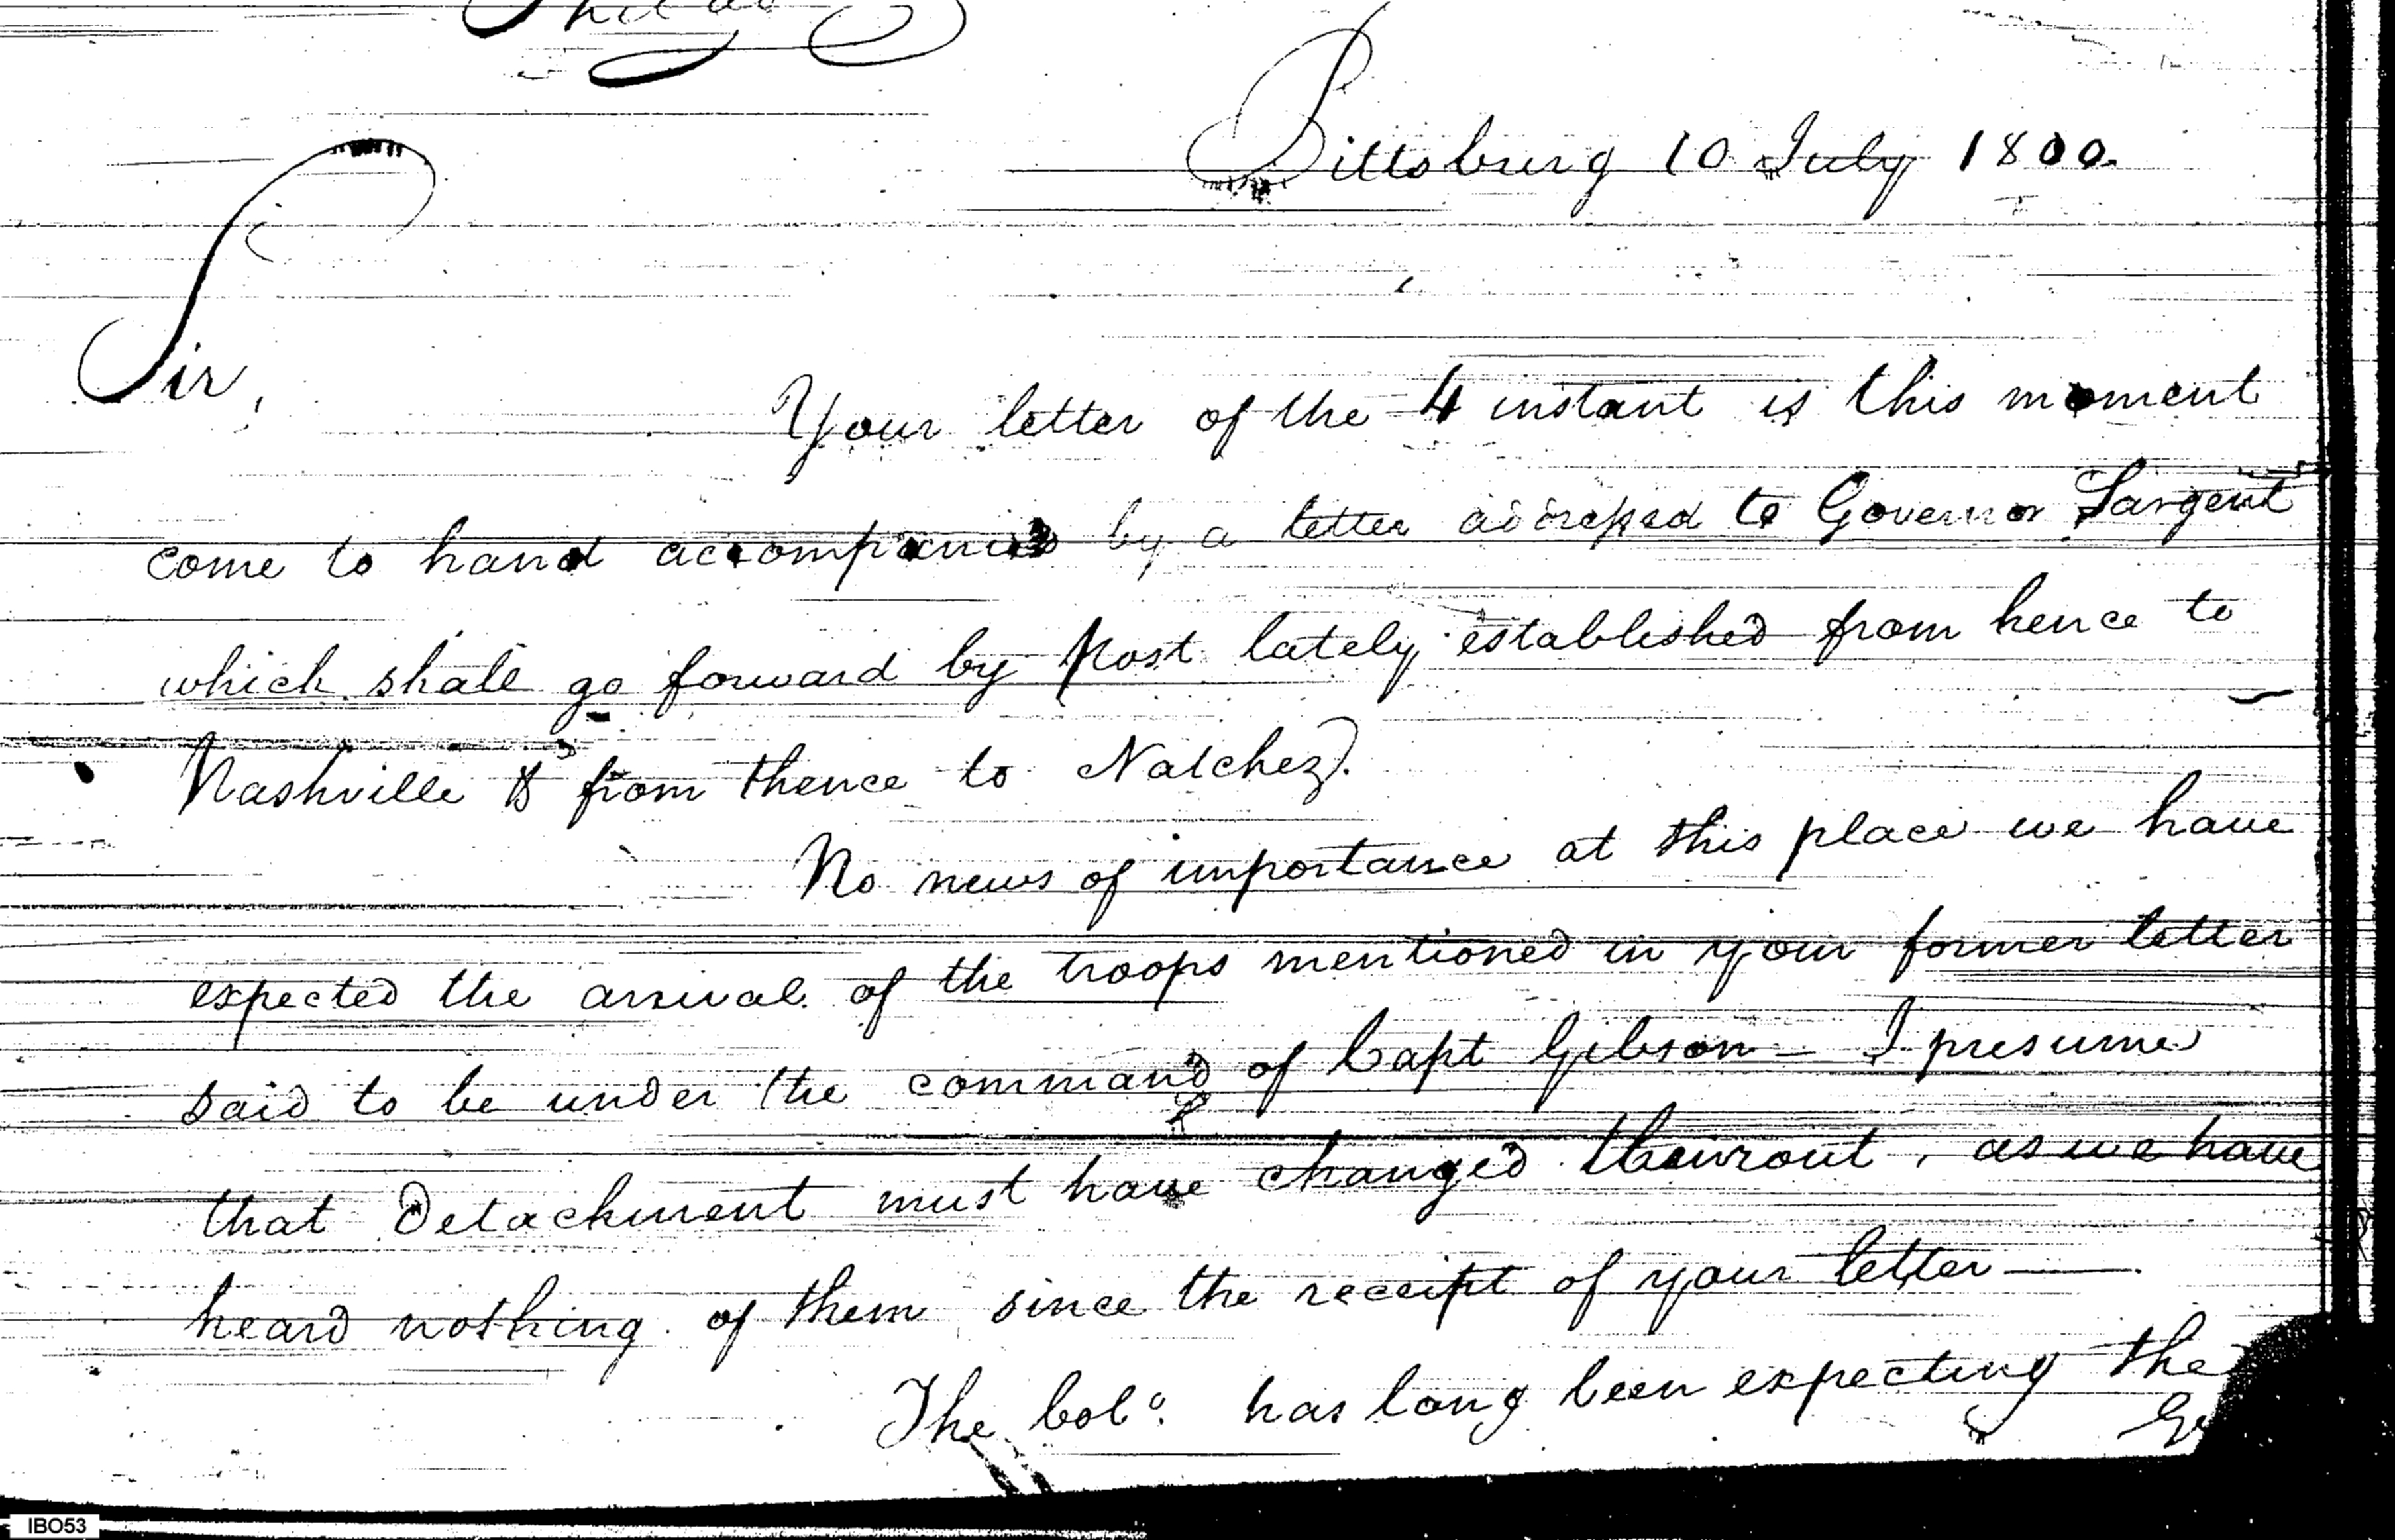 Philad
Pittsburg 10 July 1800.
Sir,
Your letter of the 4 instant is this moment
come to hand accompanied by a letter addressed to Governor Sargent
which shall go forward by Post lately established from hence to
Nashville & from thence to Natchez.
No news of importance at this place we have
expected the arrival of the troops mentioned in your former letter
said to be under the command of Capt Gibson - I presume
that Detachment must have changed their rout, as we have
heard nothing of them since the receipt of your letter —.
The Colo. has long been expecting the
IBO53